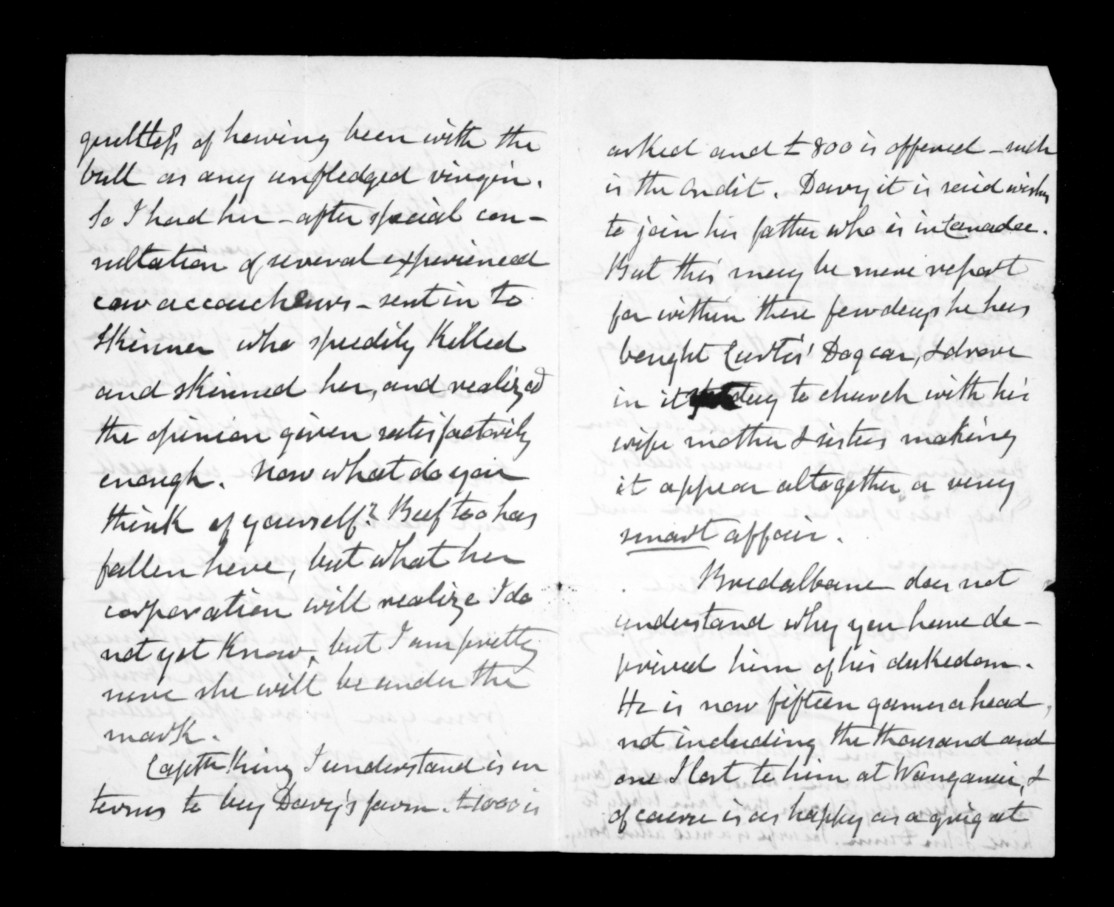 guiltless of having been with the
bull as any unfledged virgin.
So I had her - after special con-
sultation of several experienced
cow accoucheurs - sent in to
Skinner who speedily killed
and skinned her, and realized
the opinion given satisfactorily
enough. Now what do you
think of yourself? Beef too has
fallen here, but what her
corporation will realize I do
not yet know, but I am pretty
sure she will be under the
mark.
Captn King I understand is in
terms to buy Davy's farm. £1000 is
asked and £800 is offered - such
is the on dit. Davy it is said wishes
to join his father who is in Canada.
But this may be mere report
for within these few days he has
bought Curtis' Dogcar, & drove
in it to church with his
wife mother & sisters making
it appear altogether a very
smart affair.
Bredalbane does not
understand why you have de-
prived him of his dukedom.
He is now fifteen games ahead,
not including the thousand and
one I lost to him at Wanganui, &
of course is as happy as a grig at